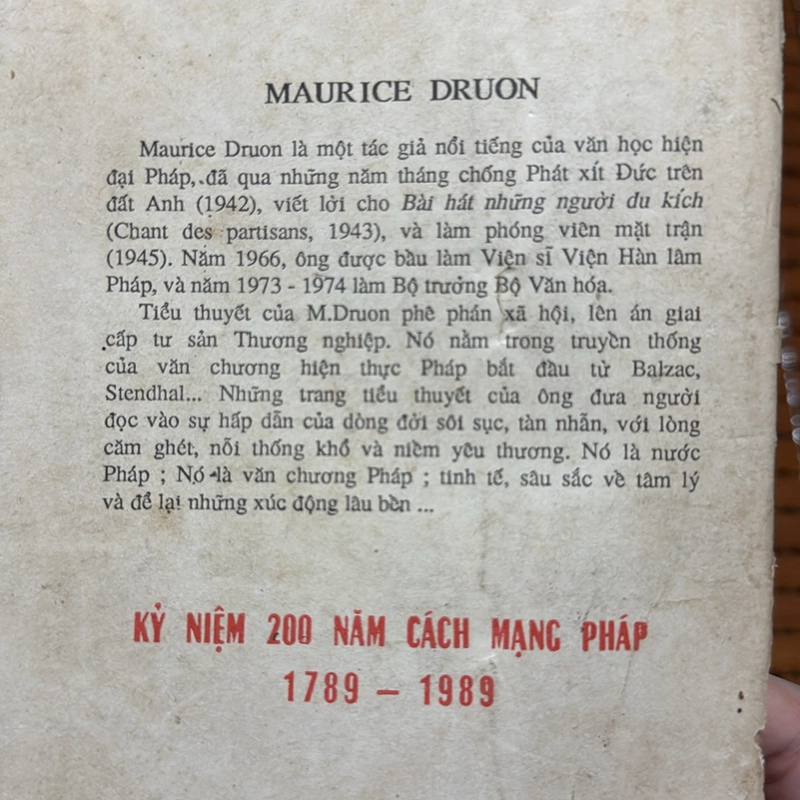 MAURICE DRUON
Maurice Druon là một tác giả nổi tiếng của văn học hiện
đại Pháp, đã qua những năm tháng chống Phát xít Đức trên
đất Anh (1942), viết lời cho Bài hát những người du kích
(Chant des partisans, 1943), và làm phóng viên mặt trận
(1945). Năm 1966, ông được bầu làm Viện sĩ Viện Hàn lâm
Pháp, và năm 1973 - 1974 làm Bộ trưởng Bộ Văn hóa.
Tiểu thuyết của M.Druon phê phán xã hội, lên án giai
cấp tư sản Thương nghiệp. Nó nằm trong truyền thống
của văn chương hiện thực Pháp bắt đầu từ Balzac,
Stendhal... Những trang tiểu thuyết của ông đưa người
đọc vào sự hấp dẫn của dòng đời sôi sục, tàn nhẫn, với lòng
căm ghét, nỗi thống khổ và niềm yêu thương. Nó là nước
Pháp ; Nó là văn chương Pháp ; tinh tế, sâu sắc về tâm lý
và để lại những xúc động lâu bền ...
KỶ NIỆM 200 NĂM CÁCH MẠNG PHÁP
1789 - 1989